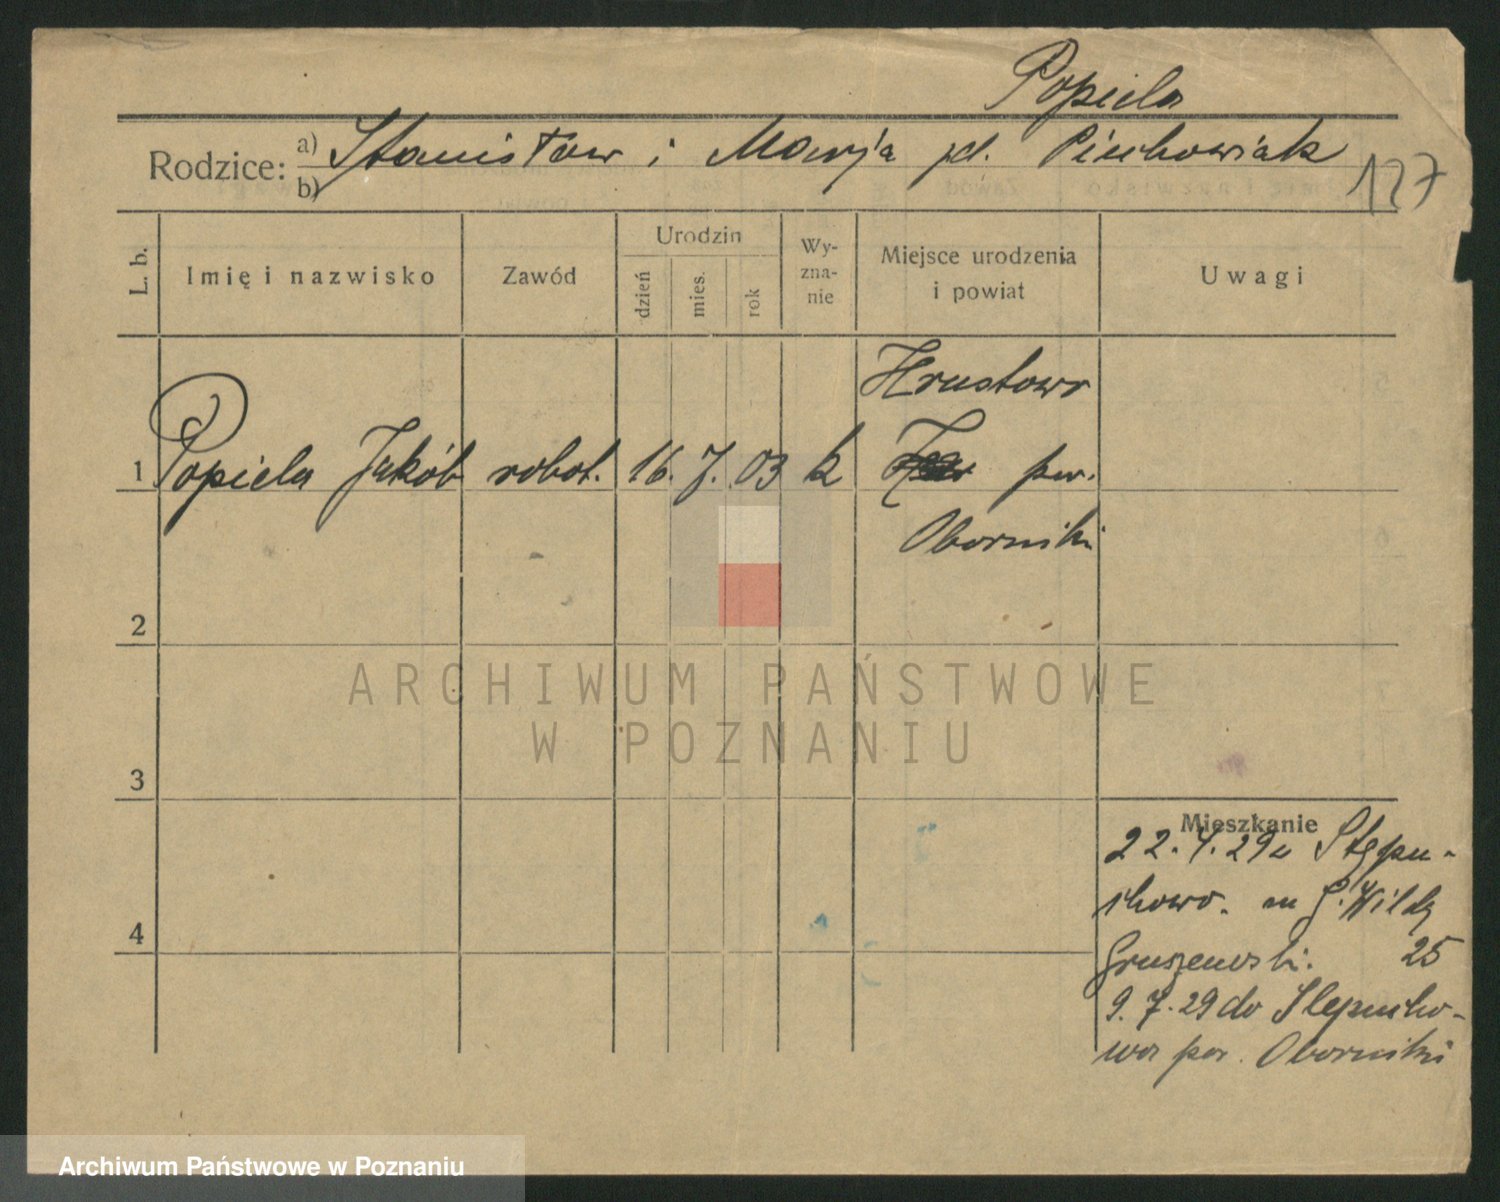 Popiela
Rodzice: a) Stanisław i Marja zd. Piechowiak
b)
127
L. b.
Imię i nazwisko
Zawód
Urodzin
dzień
mies.
rok
Wy-
zna-
nie
Miejsce urodzenia
i powiat
Uwagi
Hrustowo
1 Popiela Jakób robot. 16. 7. 03 k pow.
Oborniki
2
3
4
ARCHIWUM PAŃSTWOWE
W POZNANIU
Mieszkanie
22. 4. 29 z
G. Wildy
Gruszewski. 25
9. 7. 29 do Slepucho-
wa pow. Oborniki
Archiwum Państwowe w Poznaniu